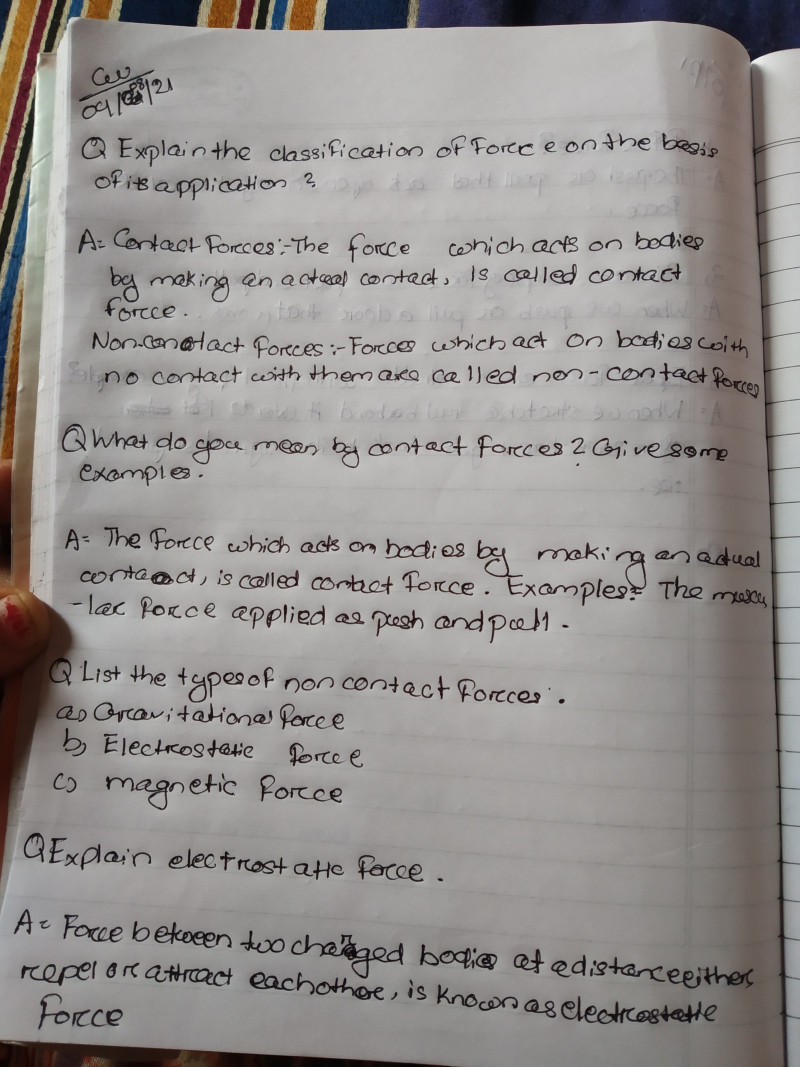 CW
Q Explain the classification of Force on the basis
of its application ?
A= Contact Forces:-The force which acts on bodies
by making an actual contact, Is called contact
force.
Non-contact forces:- Forces which act on bodies with
no contact with them are called non-contact forces
Q What do you mean by contact forces? Give some
examples.
A= The Force which acts on bodies by making an actual
contact, is called contact force. Examples= The muscu
-lar force applied as push and pull.
Q List the types of non contact forces.
a) Gravitational force
b) Electrostatic force
c) magnetic force
Q Explain electrostatic force.
A= Force between two charged bodies at a distance either
repel or attract each other, is known as electrostatic
force